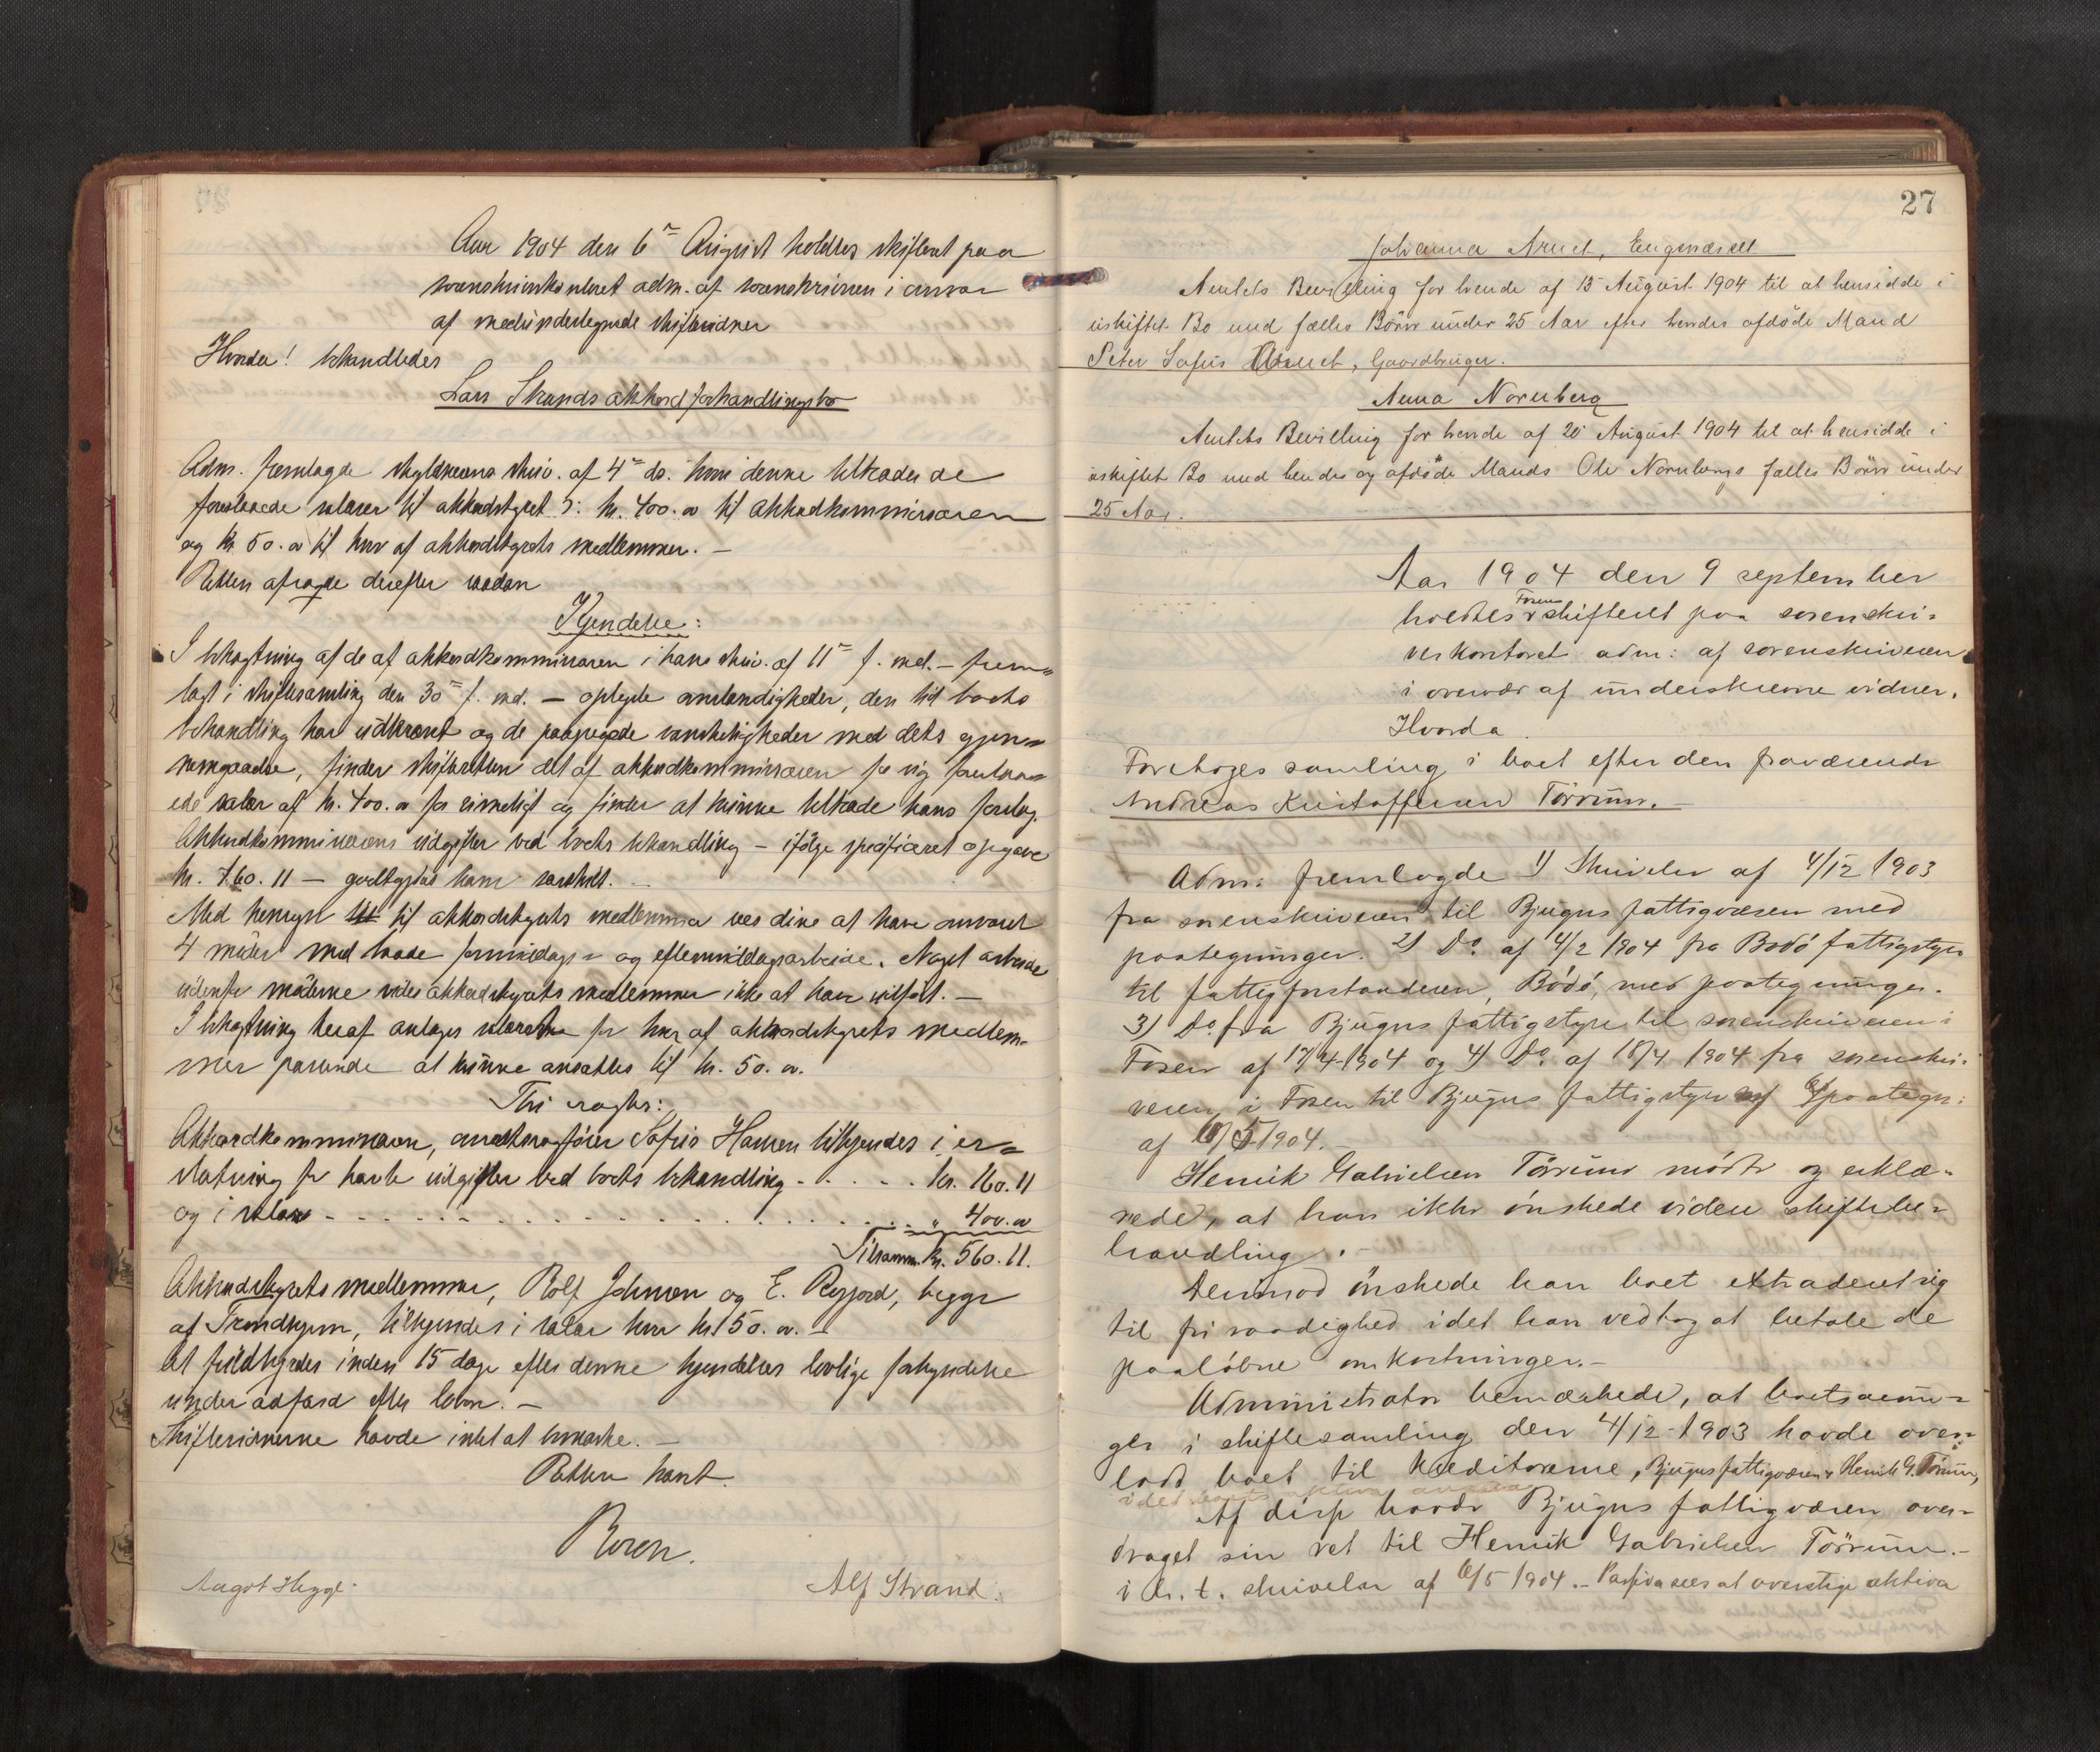 Aar 1904 den 6te August holdtes skifteret paa
sorenskriverkontoret adm. af sorenskriveren i overvær
af medundertegnede skiftevidner
Hvorda! behandledes
Lars Strands akkordforhandlingsbo
Adm. fremlagde skyldnerens skriv. af 4de ds. hvori denne tiltræder de
foreslaaede salærer til akkordstyret ɔ: kr. 400.00 til akkordkommissæren
og kr 50.00 til hver af akkordstyrets medlemmer. —
Retten afsagde derefter saadan
Kjendelse:
I betragtning af de af akkordkommissæren i hans skriv. af 11te f. md. — frem=
lagt i skiftesamling den 30te f. md. — oplyste omstændigheder, den tid boets
behandling har udkrævet og de paapegede vanskeligheder med dets gjen=
nemgaaelse, finder skifteretten det af akkordkommissæren for sig foreslaa=
ede salær af kr. 400.00 for rimeligt og finder at kunne tiltræde hans forslag.
Akkordkommissærens udgifter ved boets behandling — ifølge specificeret opgave
kr. 160.11 — godtgjøres ham særskilt. —
Med hensyn til akkordstyrets medlemmer sees disse at have overværet
4 møder med baade formiddags= og eftermiddagsarbeide. Noget arbeide
udenfor møderne vides akkordstyrets medlemmer ikke at have udført. —
I betragtning heraf antages salærerne for hver af akkordstyrets medlem=
mer passende at kunne ansættes til kr. 50.00.
Thi eragtes:
Akkordkommissæren, overretssagfører Sofus Hansen tilkjendes i er=
statning for havte udgifter ved boets behandling - - - - - kr. 160.11
og i salær - - - - - - - - - - - - - - - - „ 400.00
Tilsamm. kr. 560.11.
Akkordstyrets medlemmer, Rolf Johnsen og E. Rygjord, begge
af Trondhjem, tilkjendes i salær hver kr. 50.00. —
At fuldbyrdes inden 15 dage efter denne kjendelses lovlige forkyndelse
under adfærd efter loven. —
Skiftevidnerne havde intet at bemærke. —
Retten hævet.
Aagot Hegge. Alf Strand.
27
Johanna Arnet, Engenæsset
Amtets Bevilling for hende af 15 August 1904 til at hensidde i
uskiftet Bo med fælles Børn under 25 Aar efter hendes afdøde Mand
Peter Sofus Arnet, Gaardbruger.
Anna Nornberg
Amtets Bevilling for hende af 20 August 1904 til at hensidde i
uskiftet Bo med hendes og afdøde Mands Ole Nornbergs fælles Børn under
25 Aar.
Aar 1904 den 9 september
holdtes Fosen skifteret paa sorenskri=
verkontoret adm: af sorenskriveren
i overvær af underskrevne vidner.
Hvorda.
Foretoges samling i boet efter den fraværende
Andreas Kristoffersen Tørrum. —
Adm: fremlagde 1) Skrivelse af 4/12 1903
fra sorenskriveren til Bjugns fattigvæsen med
paategninger. 2) Do. af 4/2 1904 fra Bodø fattigstyre
til fattigforstanderen, Bodø, med paategninger.
3) Do. fra Bjugns fattigstyre til sorenskriveren i
Fosen af 17/4-1904 og 4) Do. af 18/4 1904 fra sorenskri=
veren i Fosen til Bjugns fattigstyre med paategn:
af 6/5 1904. —
Henrik Gabrielsen Tørrum mødte og erklæ=
rede, at han ikke ønskede videre skiftebe=
handling. —
Derimod ønskede han boet extraderet sig
til fri raadighed idet han vedtog at betale de
paaløbne omkostninger. —
Administrator bemærkede, at boets arvin=
ger i skiftesamling den 4/12-1903 havde over=
ladt boet til kreditorerne, Bjugns fattigvæsen & Henrik G. Tørrum,
idet boets aktiva
Af disse havde Bjugns fattigvæsen over=
draget sin ret til Henrik Gabrielsen Tørrum. —
i h. t. skrivelse af 6/5 1904. — Passiva sees at overstige aktiva